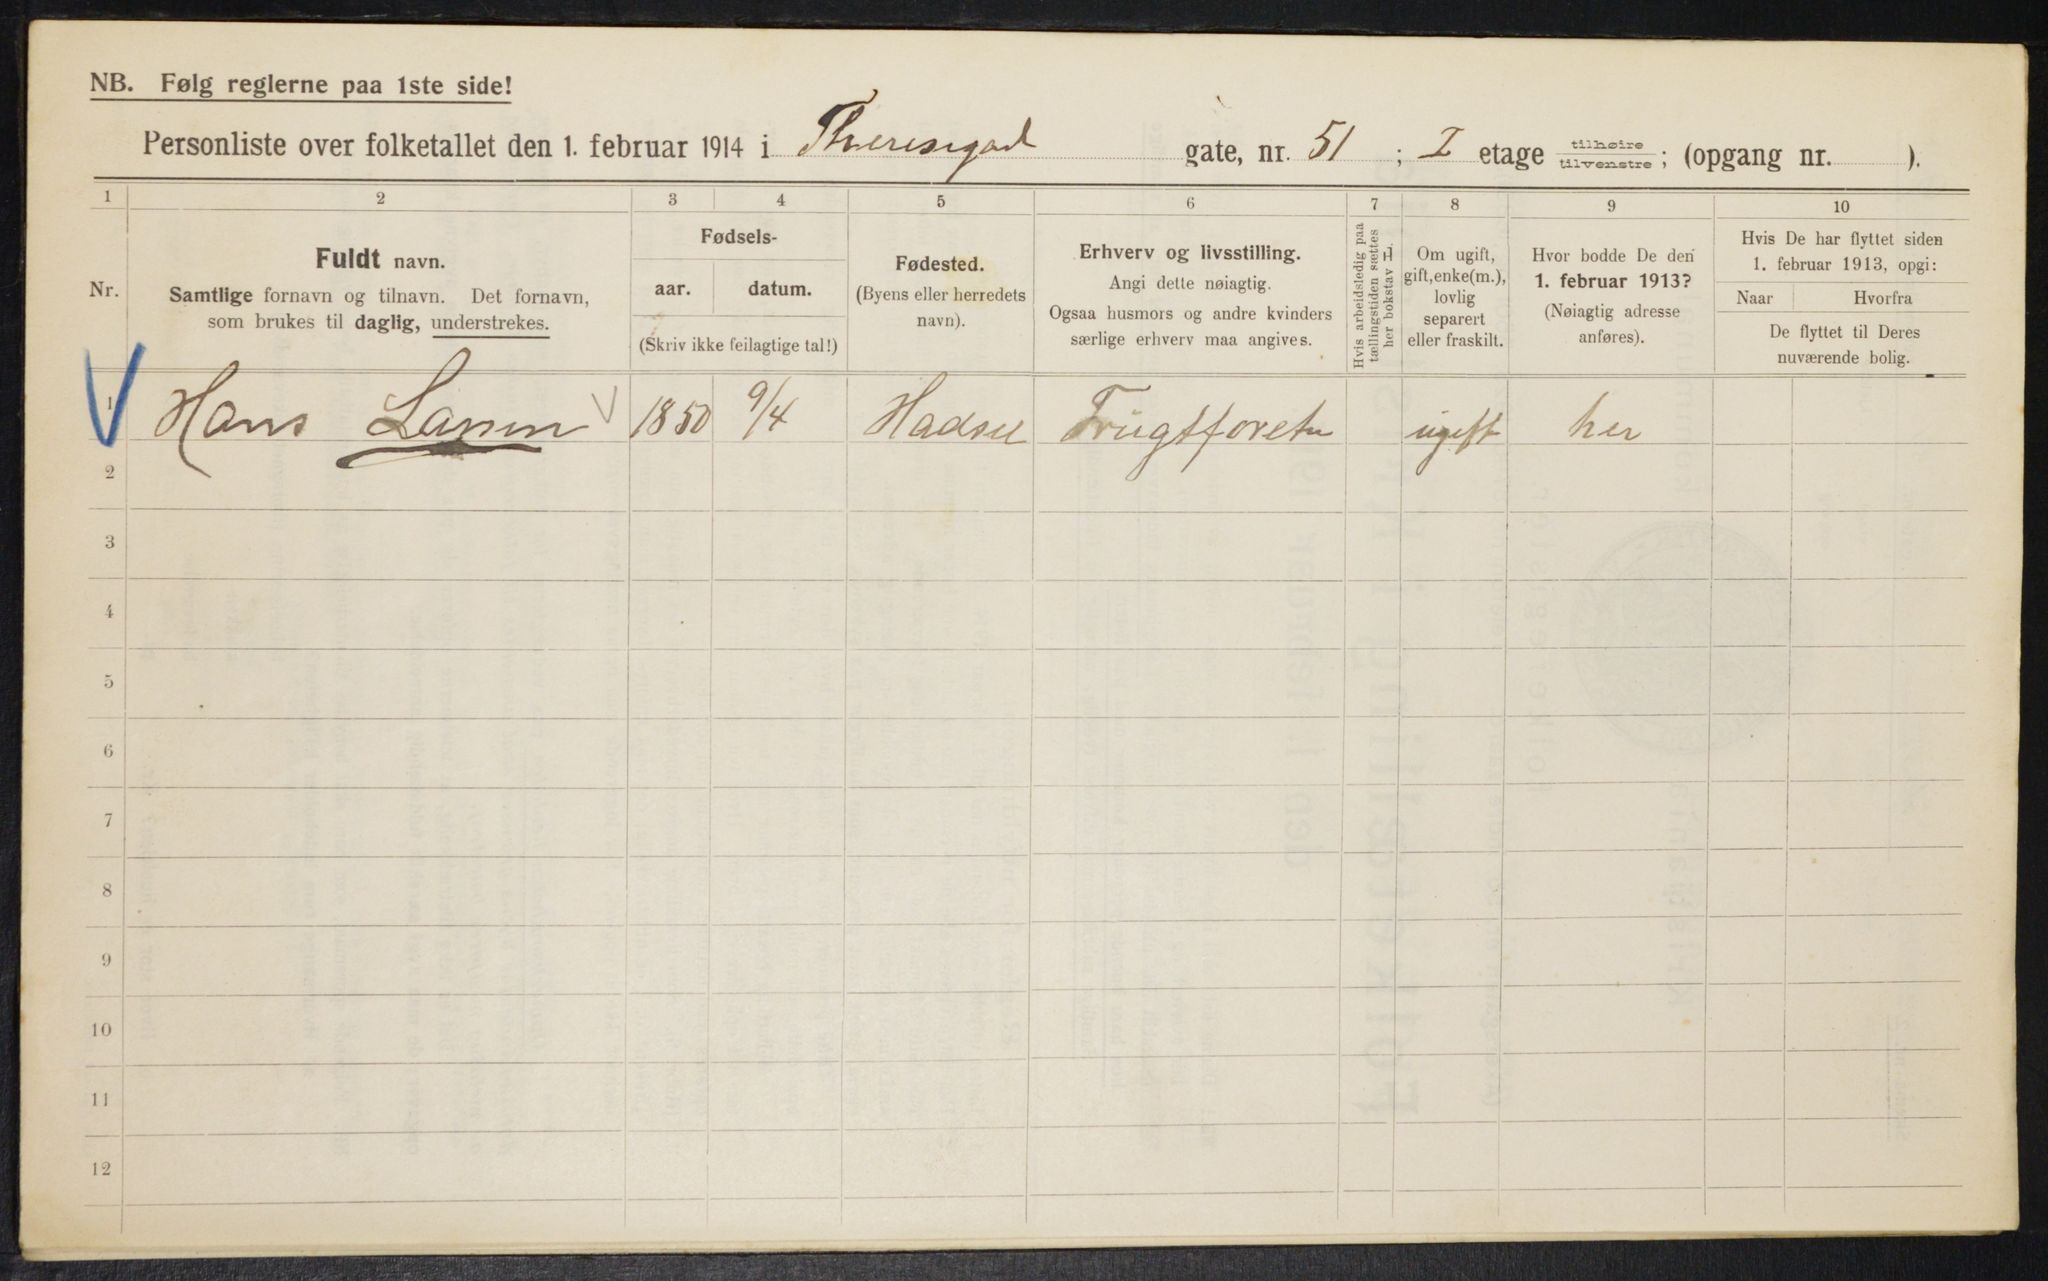 NB. Følg reglerne paa 1ste side!
Personliste over folketallet den 1. februar 1914 i Theresegad gate, nr. 51 ; I etage tilhøire tilvenstre; (opgang nr. ).
1 2 3 4 5 6 7 8 9 10
Nr.
Fuldt navn.
Samtlige fornavn og tilnavn. Det fornavn,
som brukes til daglig, understrekes.
Fødsels-
aar. datum.
(Skriv ikke feilagtige tal!)
Fødested.
(Byens eller herredets
navn).
Erhverv og livsstilling.
Angi dette nøiagtig.
Ogsaa husmors og andre kvinders
særlige erhverv maa angives.
Hvis arbeidsledig paa
tællingstiden sættes
her bokstav L
Om ugift,
gift, enke(m.),
lovlig
separert
eller fraskilt.
Hvor bodde De den
1. februar 1913?
(Nøiagtig adresse
anføres).
Hvis De har flyttet siden
1. februar 1913, opgi:
Naar Hvorfra
De flyttet til Deres
nuværende bolig.
1 Hans 1850 9/4 Hadsel ugift her
2
3
4
5
6
7
8
9
10
11
12